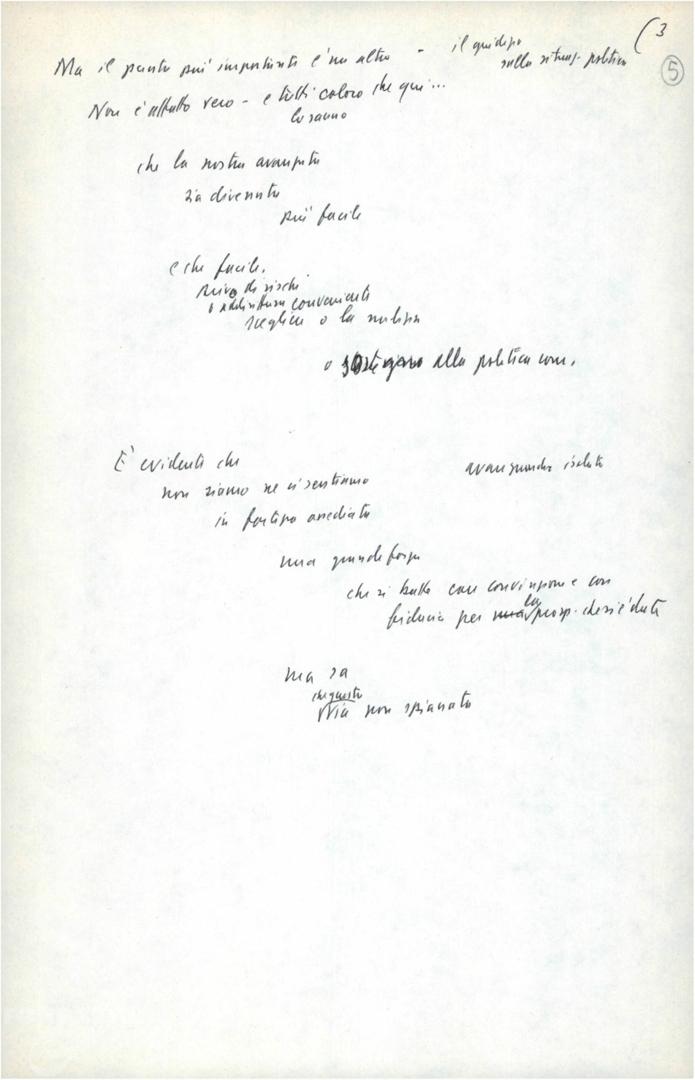 (3
5
Ma il punto più importante è un altro - il giudizio
sulla situaz. politica
Non è affatto vero - e tutti coloro che qui...
lo sanno
che la nostra avanzata
sia divenuta
più facile
e che facile,
privo di rischi
o addirittura conveniente
scegliere o la
o sostegno alla politica com.
È evidente che
avanguardia isolata
non siamo né ci sentiamo
in fortino assediato
una grande forza
che si batte con convinzione e con
fiducia per una la prosp. che si è data
ma sa
che questa
via non spianata